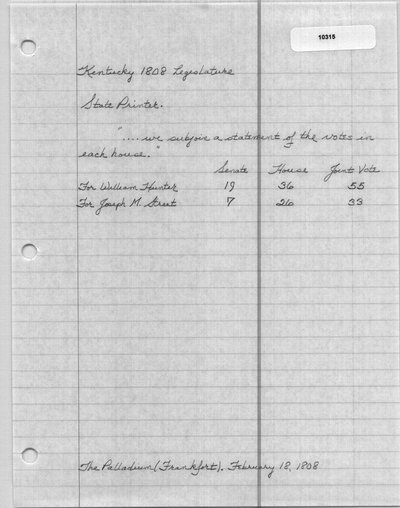 10315
Kentucky 1808 Legislature
State Printer.
"....we subjoin a statement of the votes in
each house."
Senate House Joint Vote
For William Hunter 19 36 55
For Joseph M. Street 7 26 33
The Palladium (Frankfort). February 18, 1808